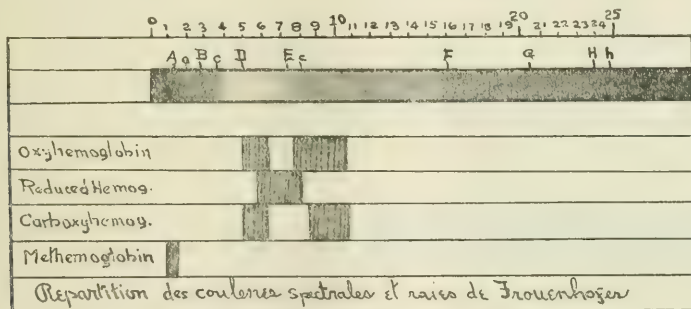 0 1 2 3 4 5 6 7 8 9 10 11 12 13 14 15 16 17 18 19 20 21 22 23 24 25
A a B C D E e F G H h
Oxyhemoglobin
Reduced Hemog.
Carboxyhemog.
Methemoglobin
Repartition des couleures spectrales et raies de Frouenhofer